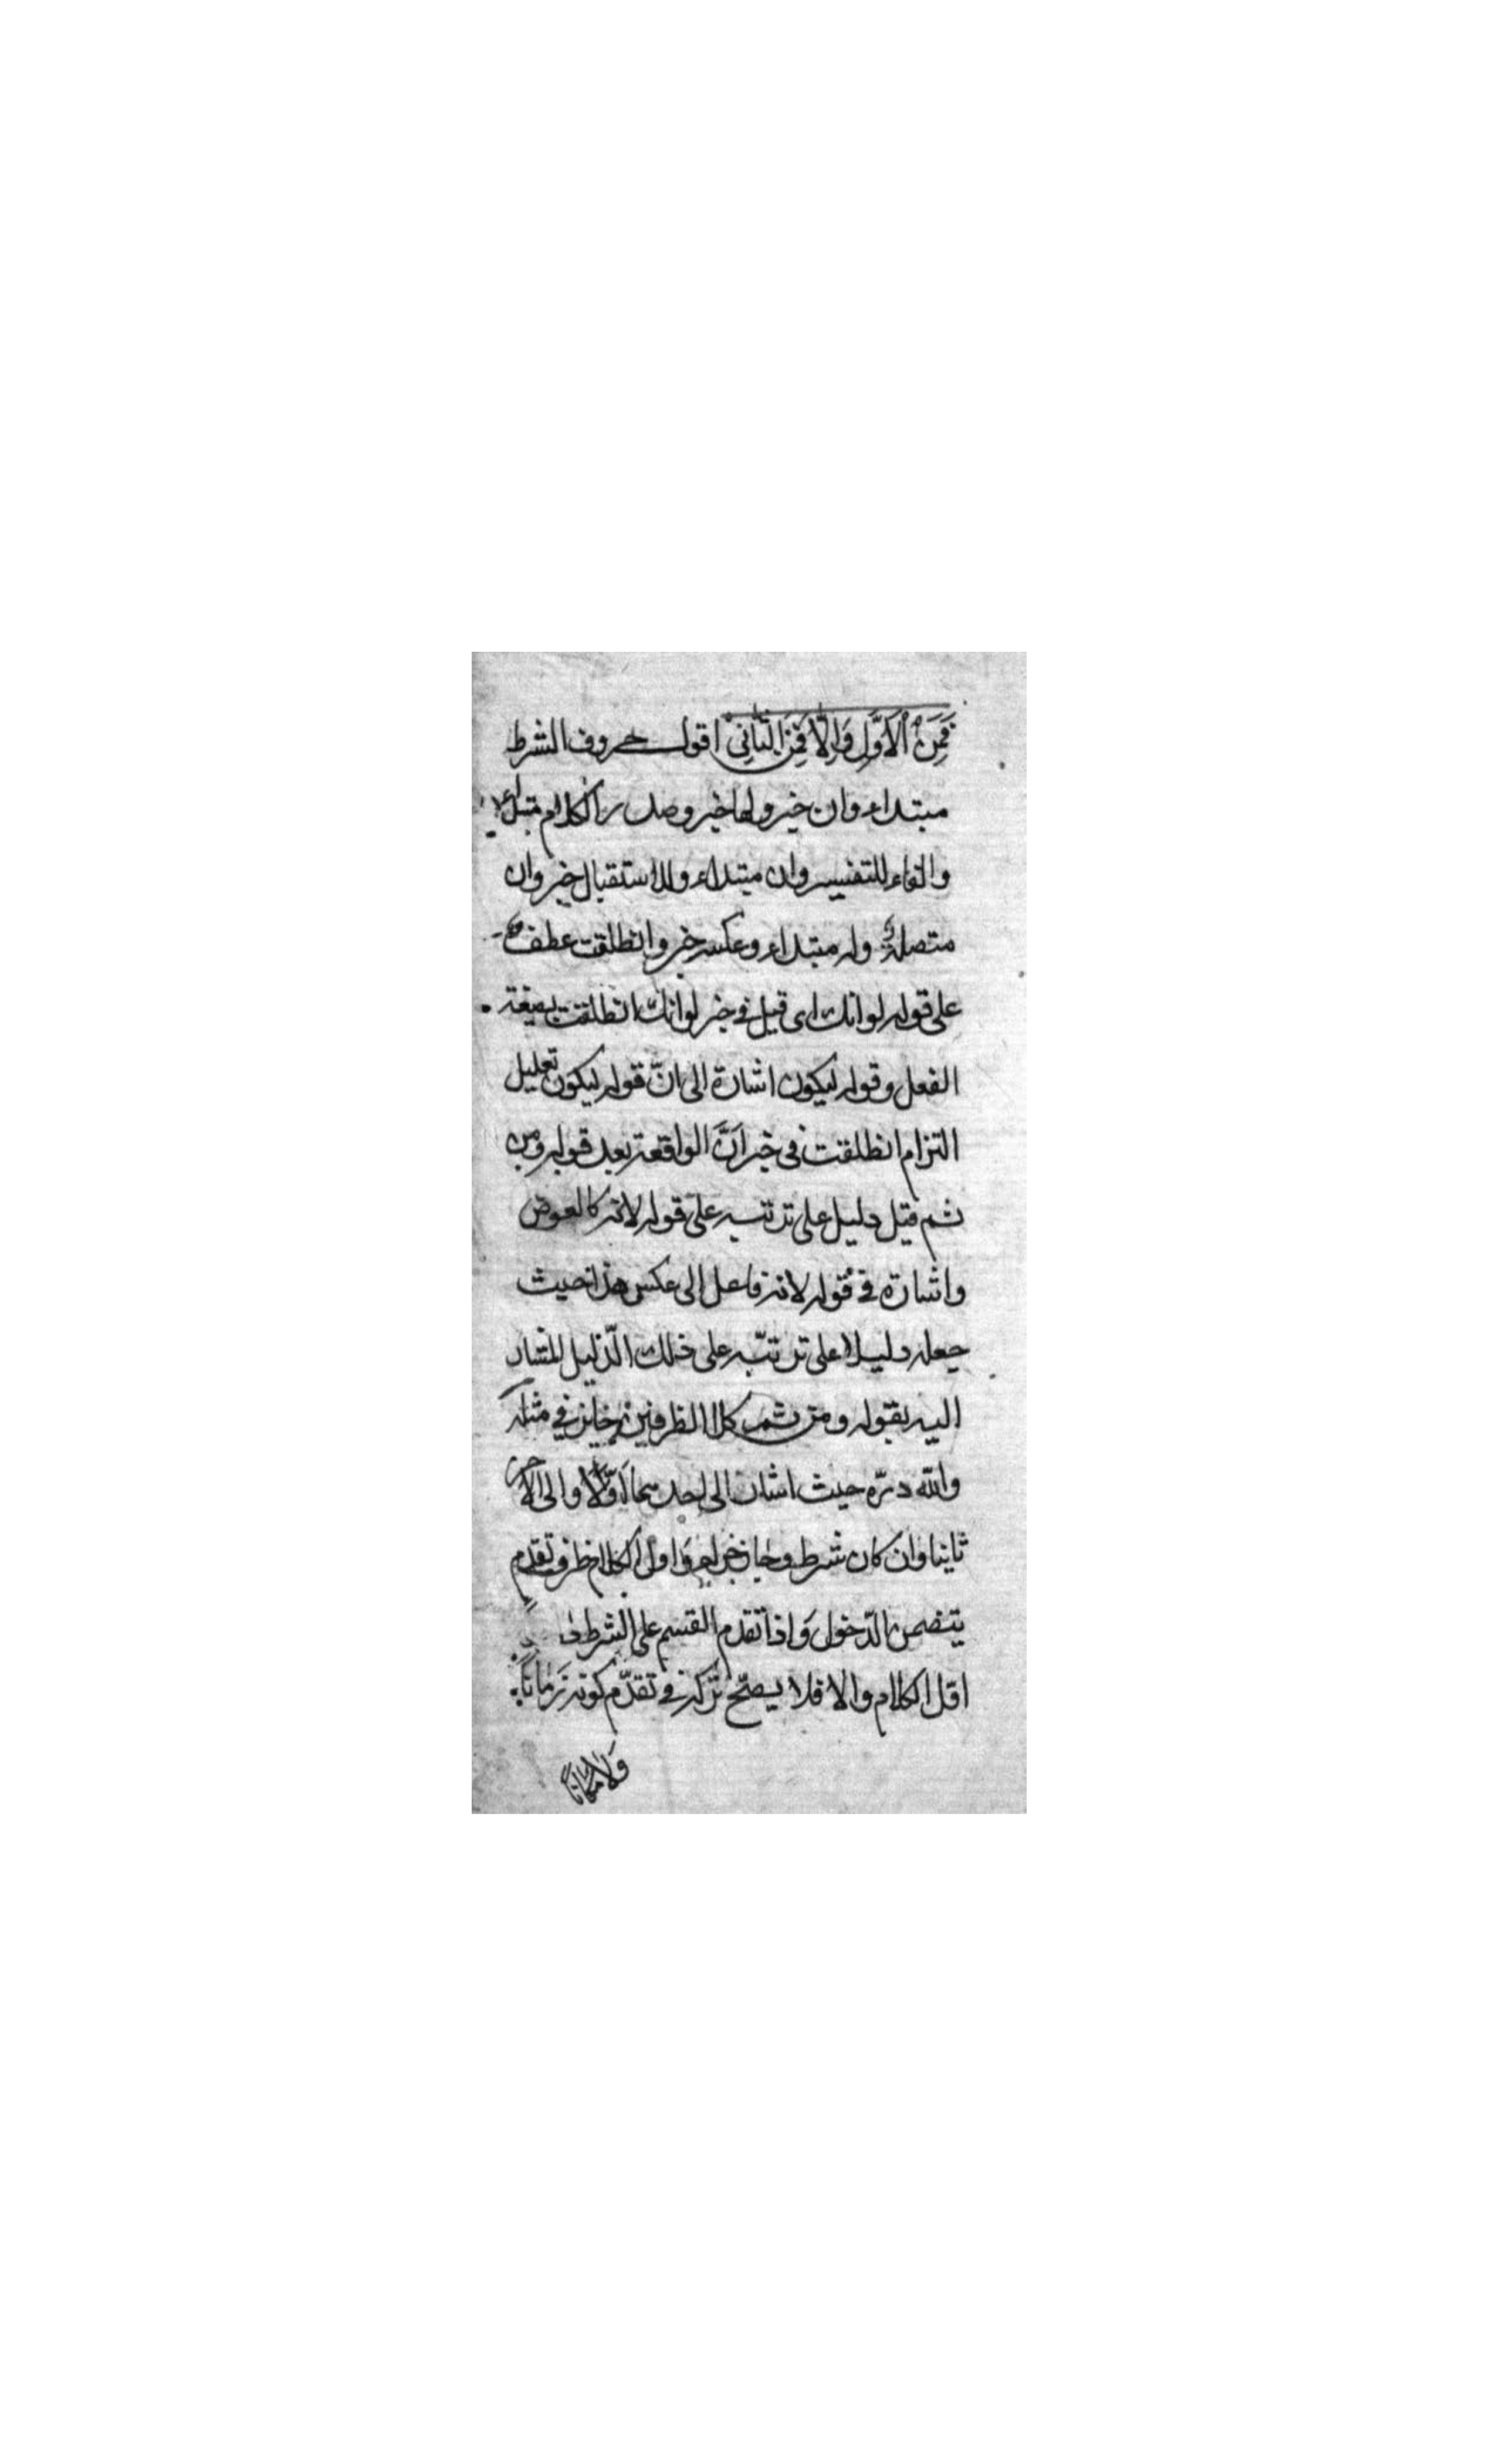 فَمِنَ الْاَوَّلِ وَاِلَّا فَمِنَ الثَّانِىْ اقول حروف الشرط
مبتداء وان خبر ولها خبر وصدر الكلام مبتداء
والفاء للتفسير وان مبتداء وللاستقبال خبر وان
متصلة وله مبتداء وعكسه خبر وانطلقت عطف
على قوله لوانك اى قيل فى خبر لوانك انطلقت بصيغة
الفعل وقوله ليكون اشارة الى انّ قوله ليكون تعليل
التزام انطلقت فى خبر انَّ الواقعة بعد قوله ومن
ثم قيل دليل على ترتبه على قوله لانه كالعوض
واشارة فى قوله لانه فاعل الى عكس هذا حيث
جعله دليلا على ترتبه على ذلك الدّليل المشار
اليه بقوله ومن ثم كلا الظرفين جايز فى مثله
ولله درّه حيث اشار الى احدهما اوّلًا والى الاخر
ثانيا وان كان شرط وجاز جزاء واول الكلام ظرف تقدم
يتضمن الدّخول وَاذا تقدم القسم على الشرط فى
اول الكلام والا فلا يصحّ تركه فى تقدّم كونه زَمَانًا
وَلَا مَكَانًا